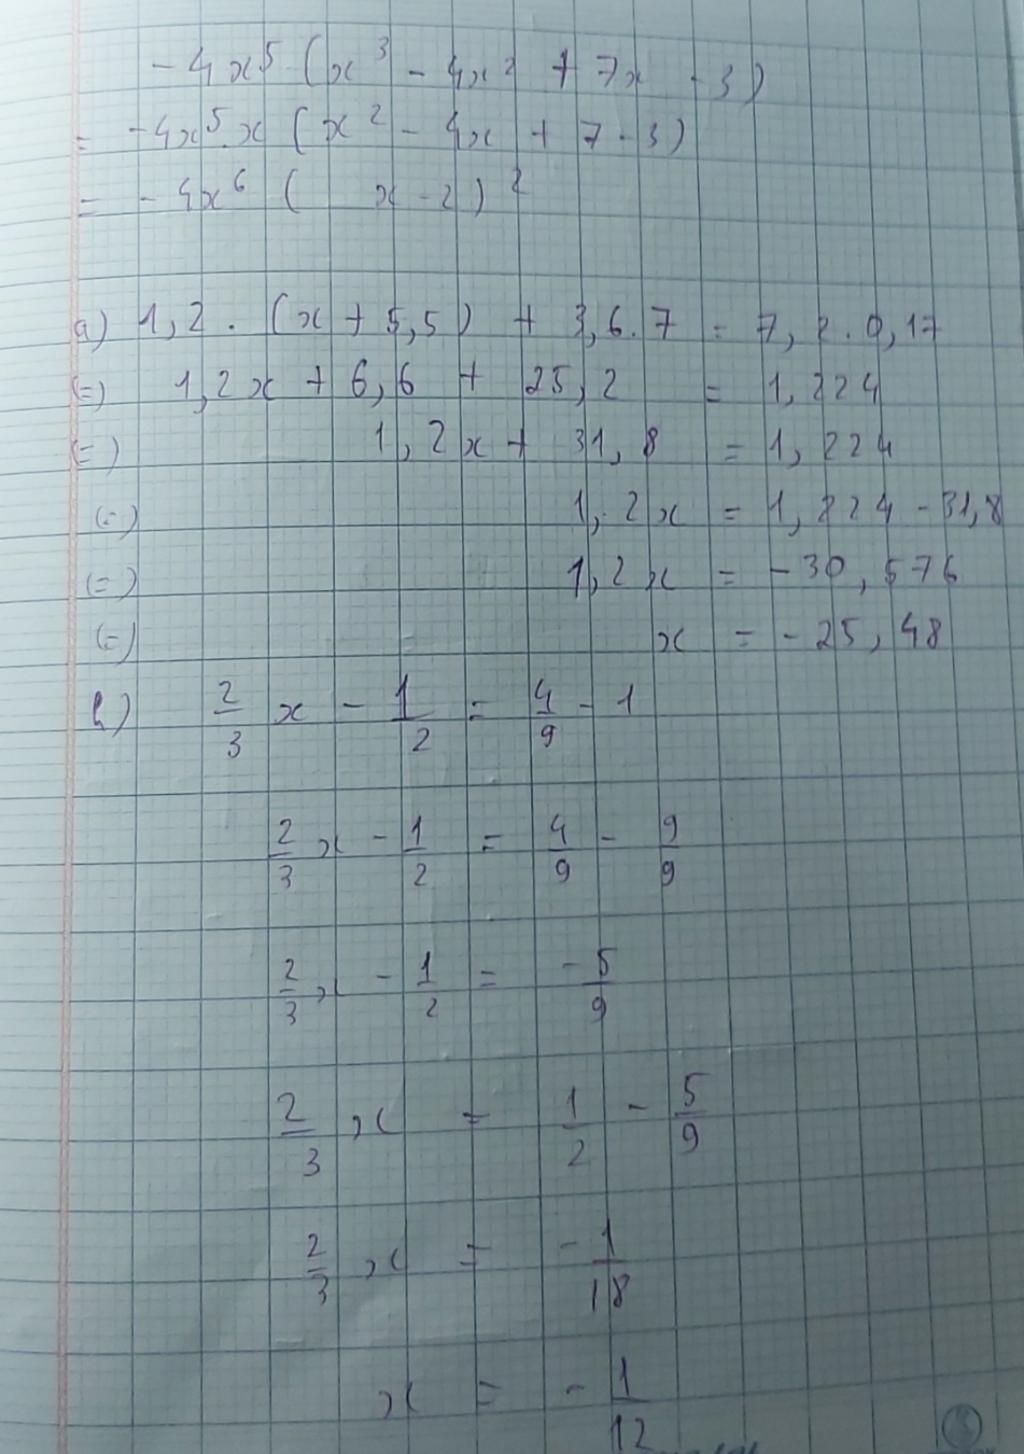 -4x⁵ (x³ - 4x² + 7x - 3)
= -4x⁵.x (x² - 4x + 7-3)
= -4x⁶ ( x-2)²
a) 1,2. (x + 5,5) + 3,6.7 = 7,2.0,17
(=) 1,2x + 6,6 + 25,2 = 1,224
(=) 1,2x + 31,8 = 1,224
(=) 1,2x = 1,224 - 31,8
(=) 1,2x = -30,576
(=) x = -25,48
b) 2/3 x - 1/2 = 4/9 - 1
2/3 x - 1/2 = 4/9 - 9/9
2/3 x - 1/2 = -5/9
2/3 x = 1/2 - 5/9
2/3 x = -1/18
x = -1/12